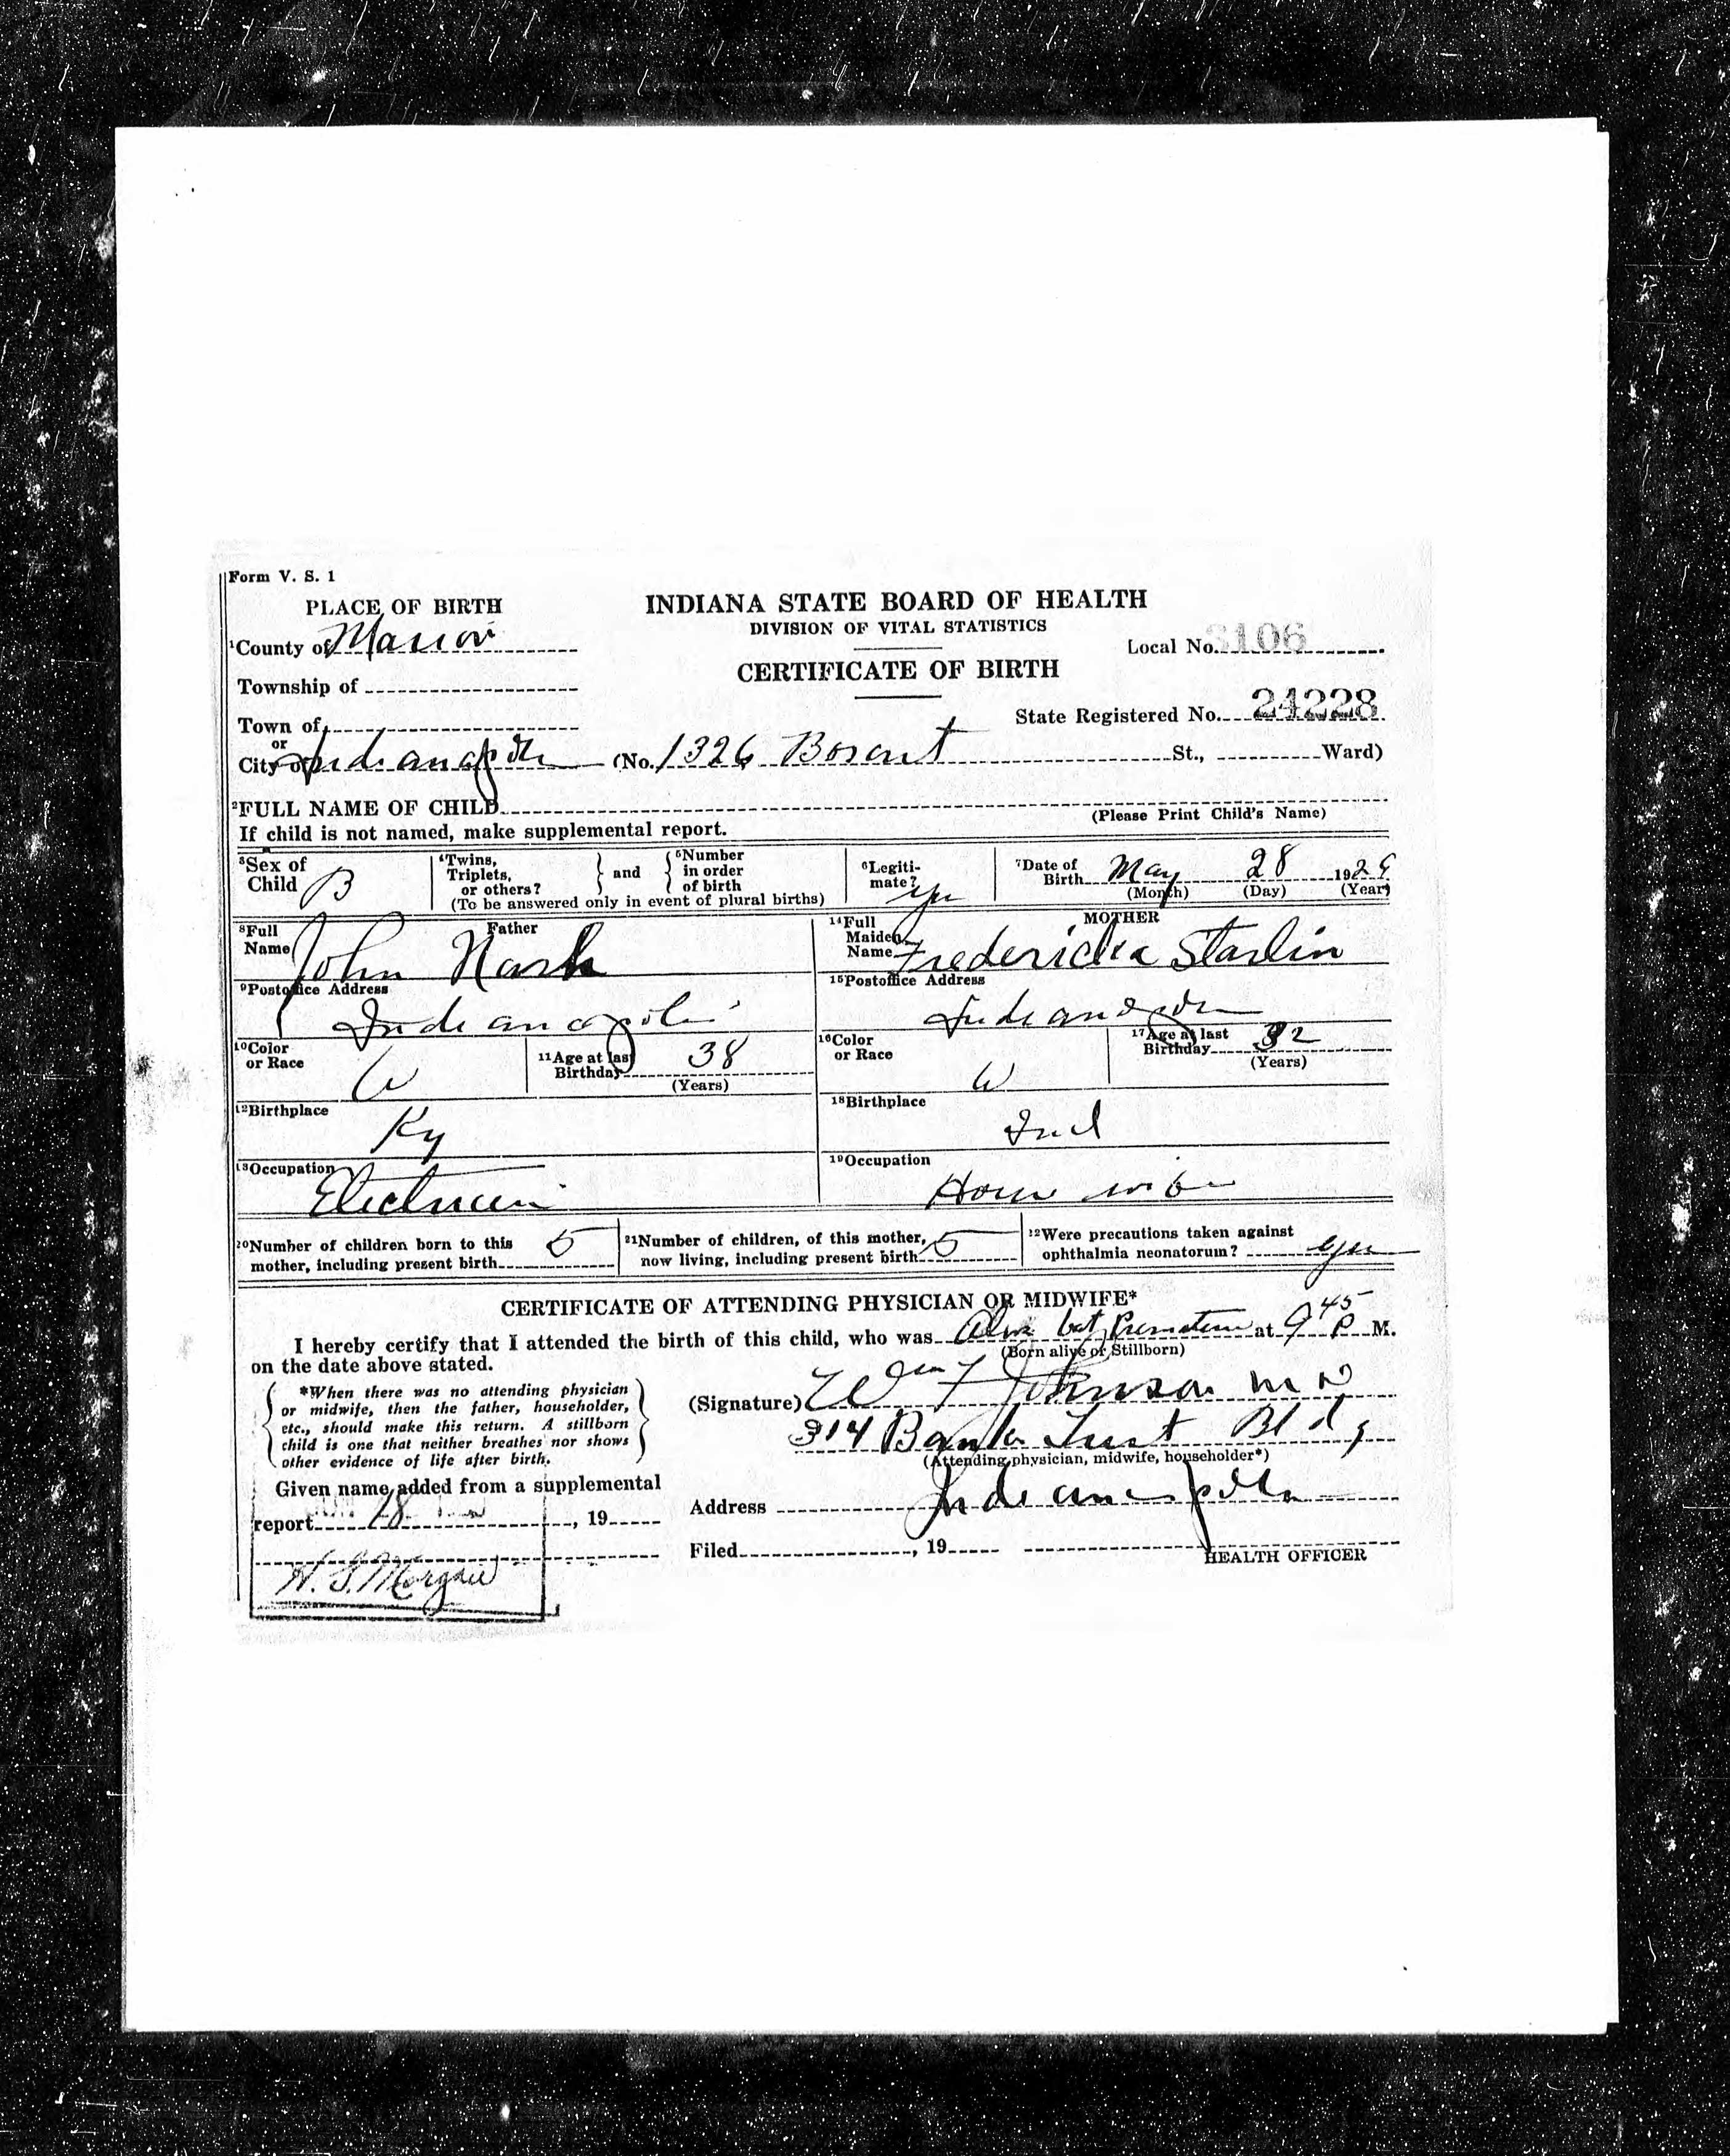 Form V. S. 1
PLACE OF BIRTH
INDIANA STATE BOARD OF HEALTH
DIVISION OF VITAL STATISTICS
1County of Marion
Local No. 3106
CERTIFICATE OF BIRTH
Township of
Town of
State Registered No. 24228
or
City of Indianapolis (No. 1326 Bosart St., Ward)
2FULL NAME OF CHILD
(Please Print Child's Name)
If child is not named, make supplemental report.
3Sex of Child B
4Twins, Triplets, or others? } and { 5Number in order of birth
(To be answered only in event of plural births)
6Legiti-mate? yes
7Date of Birth May 28 1929
(Month) (Day) (Year)
Father
8Full Name John Nash
MOTHER
14Full Maiden Name Fredericka Starlin
9Postoffice Address
Indianapolis
15Postoffice Address
Indianapolis
10Color or Race W
11Age at last Birthday 38
(Years)
16Color or Race W
17Age at last Birthday 32
(Years)
12Birthplace
Ky
18Birthplace
Ind
13Occupation
Electrician
19Occupation
House wife
20Number of children born to this mother, including present birth 5
21Number of children, of this mother, now living, including present birth 5
22Were precautions taken against ophthalmia neonatorum? yes
CERTIFICATE OF ATTENDING PHYSICIAN OR MIDWIFE*
I hereby certify that I attended the birth of this child, who was Alive but Premature at 9 45 P M.
(Born alive or Stillborn)
on the date above stated.
*When there was no attending physician
or midwife, then the father, householder,
etc., should make this return. A stillborn
child is one that neither breathes nor shows
other evidence of life after birth.
(Signature) Wm F Johnson M D
314 Bankers Trust Bldg
(Attending physician, midwife, householder*)
Given name added from a supplemental
report 18, 19
Address Indianapolis
Filed , 19
HEALTH OFFICER
H. S. Morgan